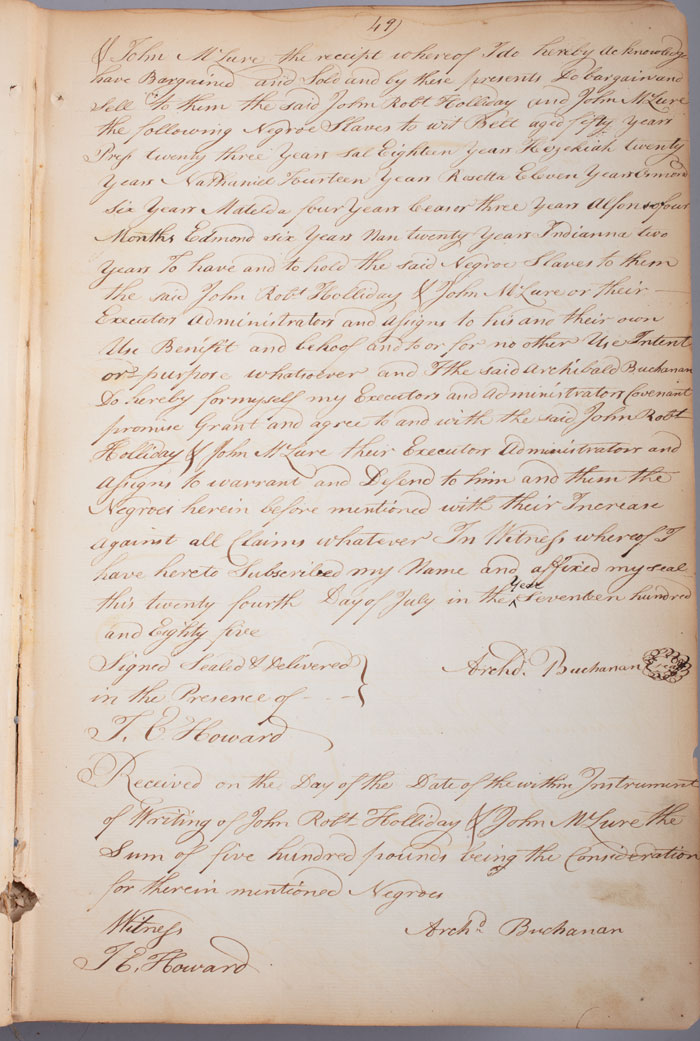 49)
& John McLure the receipt whereof I do hereby acknowledge
have Bargained and Sold and by these presents Do bargain and
Sell to them the said John Robt Holliday and John McLure
the following Negroe Slaves to wit Bell aged fifty Years
twenty three Years Sal Eighteen Years Hezekiah twenty
Years Nathaniel Fourteen Years Rosetta Eleven Years
Six Years Matilda four Years three Years four
Months Edmond six Years Nan twenty Years Indianna two
Years To have and to hold the said Negroe Slaves to them
the said John Robt Holliday & John McLure or their
Executors Administrators and Assigns to his and their own
Use Benefit and behoof and to or for no other Use Intent
or purpose whatsoever and I the said Archibald Buchanan
Do hereby for myself my Executors and Administrators Covenant
promise Grant and agree to and with the said John Robt
Holliday & John McLure their Executors Administrators and
Assigns to warrant and Defend to him and them the
Negroes herein before mentioned with their Increase
against all Claims whatever In Witness whereof I
have hereto Subscribed my Name and affixed my seal
this twenty fourth Day of July in the Year Seventeen hundred
and Eighty five
Signed Sealed & Delivered } Archd. Buchanan Seal
in the Presence of - - - -
T. C. Howard
Received on the Day of the Date of the within Instrument
of Writing of John Robt Holliday & John McLure the
Sum of five hundred pounds being the Consideration
for therein mentioned Negroes
Witness Archd Buchanan
Howard